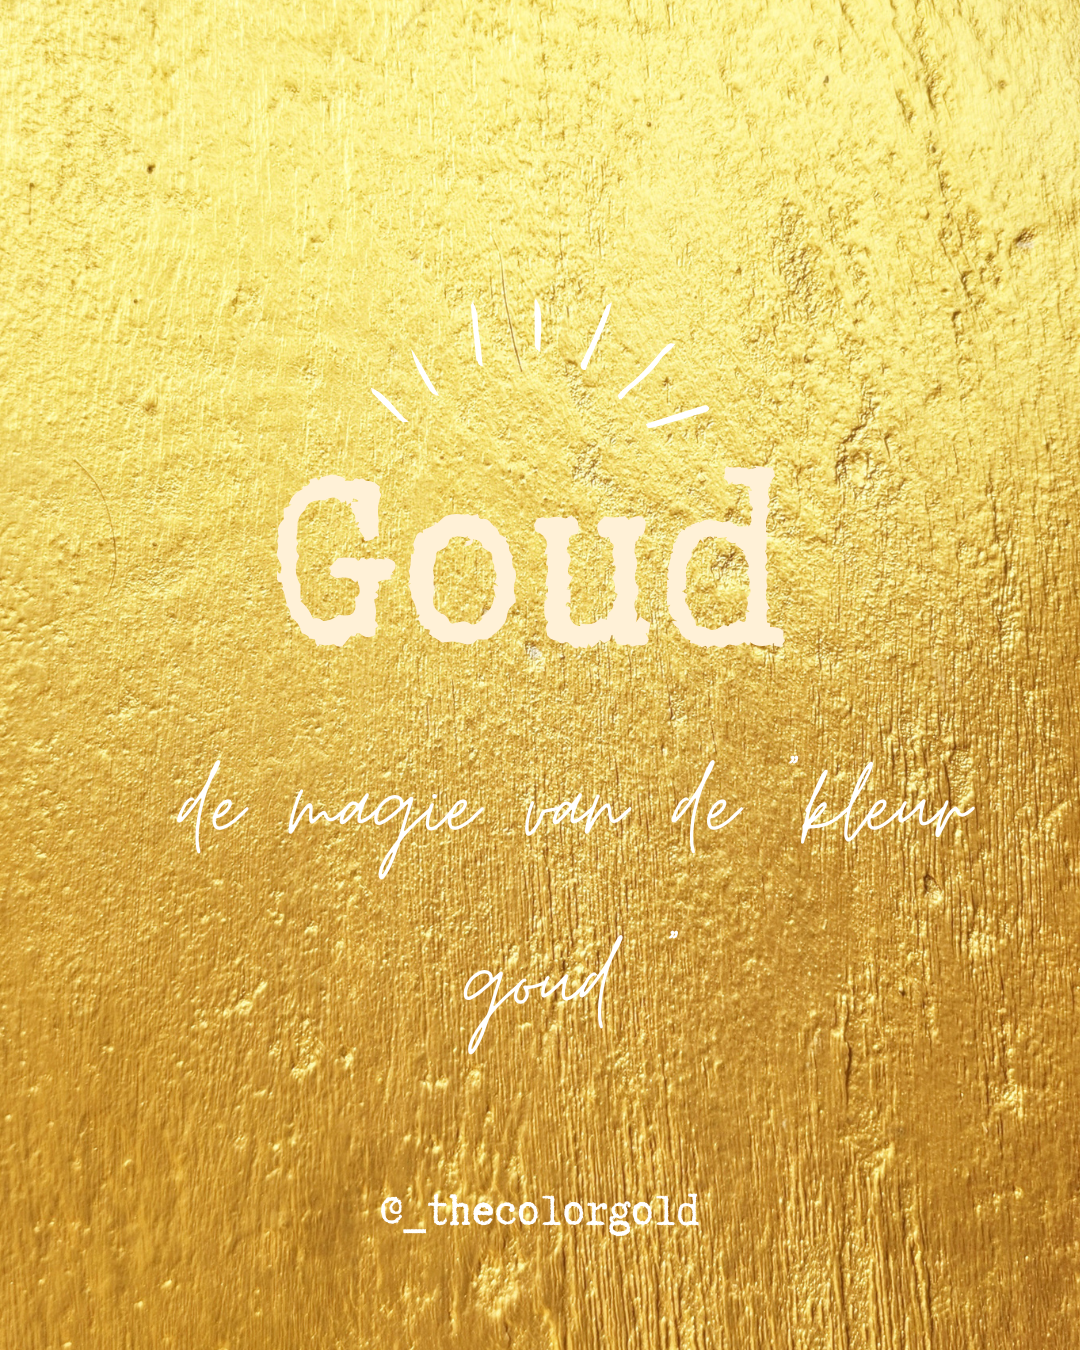 Goud
de magie van de "kleur
goud"
@_thecolorgold